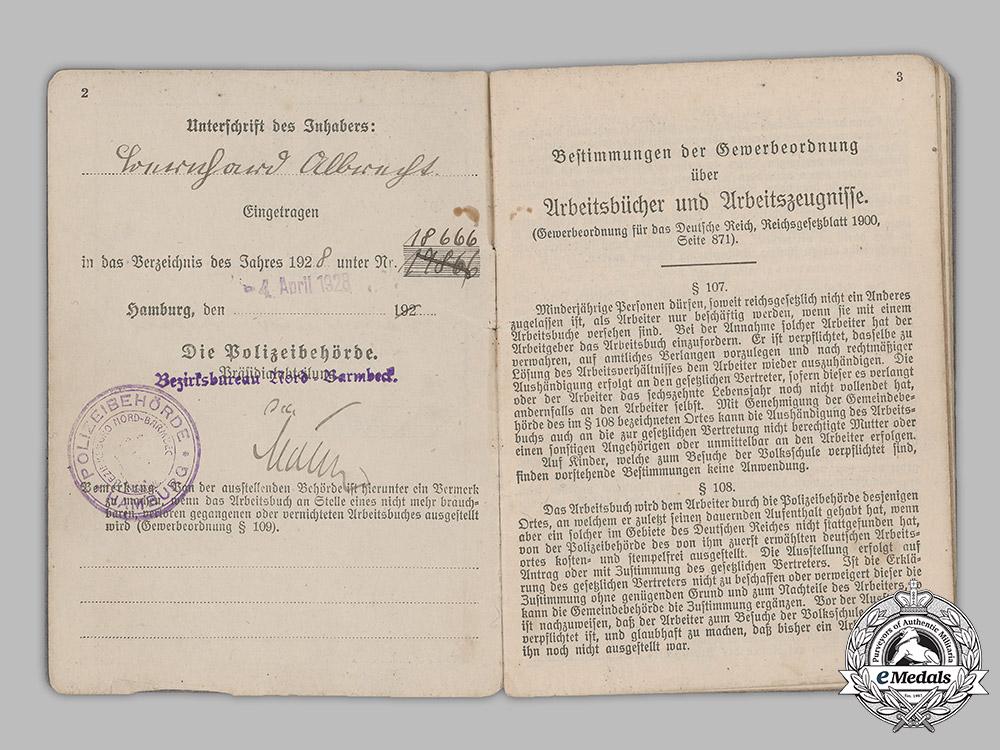 2
Unterschrift des Inhabers:
Bernhard Albrecht.
Eingetragen
18666
in das Verzeichnis des Jahres 1928 unter Nr. 17866
4. April 1928
Hamburg, den 192
Die Polizeibehörde.
Präsidialabteilung
Bezirksbureau Nord-Barmbeck.
POLIZEIBEHÖRDE
HAMBURG
BEZIRKSBÜRO NORD-BARMBECK
Bemerkung. Von der ausstellenden Behörde ist hierunter ein Vermerk
zu machen, wenn das Arbeitsbuch an Stelle eines nicht mehr brauch-
baren, verloren gegangenen oder vernichteten Arbeitsbuches ausgestellt
wird (Gewerbeordnung § 109).
3
Bestimmungen der Gewerbeordnung
über
Arbeitsbücher und Arbeitszeugnisse.
(Gewerbeordnung für das Deutsche Reich, Reichsgesetzblatt 1900,
Seite 871).
§ 107.
Minderjährige Personen dürfen, soweit reichsgesetzlich nicht ein Anderes
zugelassen ist, als Arbeiter nur beschäftig werden, wenn sie mit einem
Arbeitsbuche versehen sind. Bei der Annahme solcher Arbeiter hat der
Arbeitgeber das Arbeitsbuch einzufordern. Er ist verpflichtet, dasselbe zu
verwahren, auf amtliches Verlangen vorzulegen und nach rechtmäßiger
Lösung des Arbeitsverhältnisses dem Arbeiter wieder auszuhändigen. Die
Aushändigung erfolgt an den gesetzlichen Vertreter, sofern dieser es verlangt
oder der Arbeiter das sechszehnte Lebensjahr noch nicht vollendet hat,
andernfalls an den Arbeiter selbst. Mit Genehmigung der Gemeindebe-
hörde des im § 108 bezeichneten Ortes kann die Aushändigung des Arbeits-
buchs auch an die zur gesetzlichen Vertretung nicht berechtigte Mutter oder
einen sonstigen Angehörigen oder unmittelbar an den Arbeiter erfolgen.
Auf Kinder, welche zum Besuche der Volksschule verpflichtet sind,
finden vorstehende Bestimmungen keine Anwendung.
§ 108.
Das Arbeitsbuch wird dem Arbeiter durch die Polizeibehörde desjenigen
Ortes, an welchem er zuletzt seinen dauernden Aufenthalt gehabt hat, wenn
aber ein solcher im Gebiete des Deutschen Reiches nicht stattgefunden hat,
von der Polizeibehörde des von ihm zuerst erwählten deutschen Arbeits-
ortes kosten- und stempelfrei ausgestellt. Die Ausstellung erfolgt auf
Antrag oder mit Zustimmung des gesetzlichen Vertreters. Ist die Erklä-
rung des gesetzlichen Vertreters nicht zu beschaffen oder verweigert dieser die
Zustimmung ohne genügenden Grund und zum Nachteile des Arbeiters, so
kann die Gemeindebehörde die Zustimmung ergänzen. Vor der
ist nachzuweisen, daß der Arbeiter zum Besuche der Volksschule
verpflichtet ist, und glaubhaft zu machen, daß bisher ein
ihn noch nicht ausgestellt war.
Purveyors of Authentic Militaria
eMedals
Est. 1997